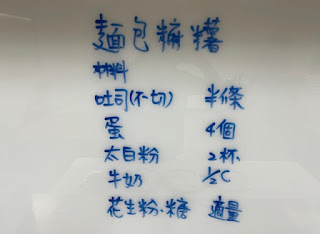 麵包麻糬
材料
吐司(不切) 半條
蛋 4個
太白粉 2杯
牛奶 ½C
花生粉、糖 適量